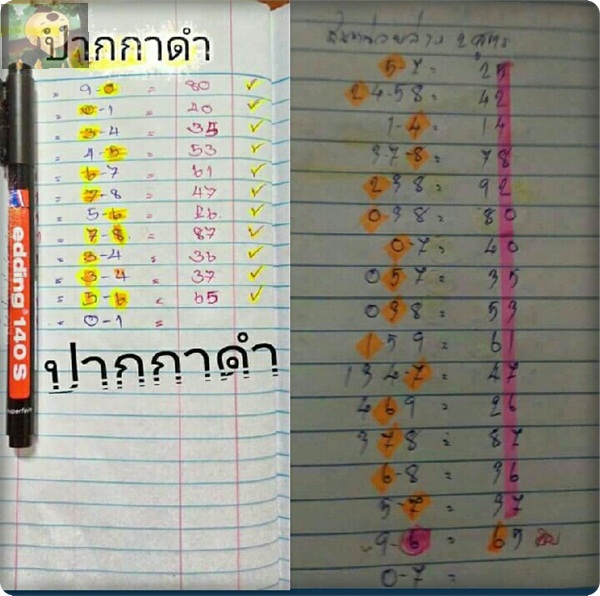 ปากกาดำ
9-0 = 80 ✓
0-1 = 40 ✓
3-4 = 35 ✓
4-5 = 53 ✓
6-7 = 61 ✓
7-8 = 47 ✓
5-6 = 26 ✓
7-8 = 87 ✓
3-4 = 36 ✓
3-4 = 37 ✓
5-6 = 65 ✓
0-1 =
ปากกาดำ
edding 140 S
superfein
5-7 = 25
24-58 = 42
1-4 = 14
37-8 = 78
238 = 92
038 = 80
0-7 = 40
057 = 35
038 = 53
159 = 61
134-7 = 47
469 = 26
378 = 87
6-8 = 36
5-7 = 37
9-6 = 65
0-7 =